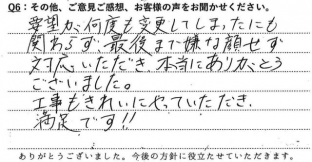 Q6：その他、ご意見ご感想、お客様の声をお聞かせください。
要望が何度も変更してしまったにも
関わらず、最後まで嫌な顔せず
対応いただき、本当にありがとう
ございました。
工事もきれいにやっていただき
満足です!!
ありがとうございました。今後の方針に役立たせていただきます。